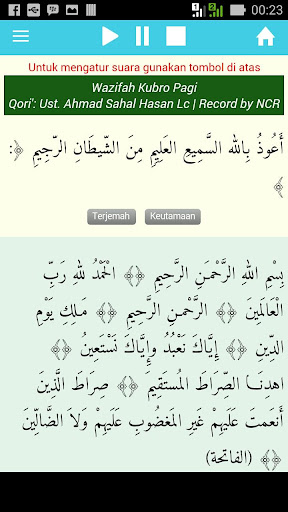 00:23
Untuk mengatur suara gunakan tombol di atas
Wazifah Kubro Pagi
Qori': Ust. Ahmad Sahal Hasan Lc | Record by NCR
أَعُوذُ بِاللهِ السَّمِيعِ العَلِيمِ مِنَ الشَّيطَانِ الرَّجِيمِ ﴿:
﴾
Terjemah Keutamaan
بِسْمِ اللهِ الرَّحْمٰنِ الرَّحِيمِ ﴿﴾ الْحَمْدُ للهِ رَبِّ
الْعَالَمِينَ ﴿﴾ الرَّحْمٰنِ الرَّحِيمِ ﴿﴾ مَـلِكِ يَوْمِ
الدِّينِ ﴿﴾ إِيَّاكَ نَعْبُدُ وإِيَّاكَ نَسْتَعِينُ ﴿﴾
اهدِنَــا الصِّرَاطَ المُستَقِيمَ ﴿﴾ صِرَاطَ الَّذِينَ
أَنعَمتَ عَلَيهِمْ غَيرِ المَغضُوبِ عَلَيهِمْ وَلاَ الضَّالِّينَ
﴿﴾ (الفاتحة)